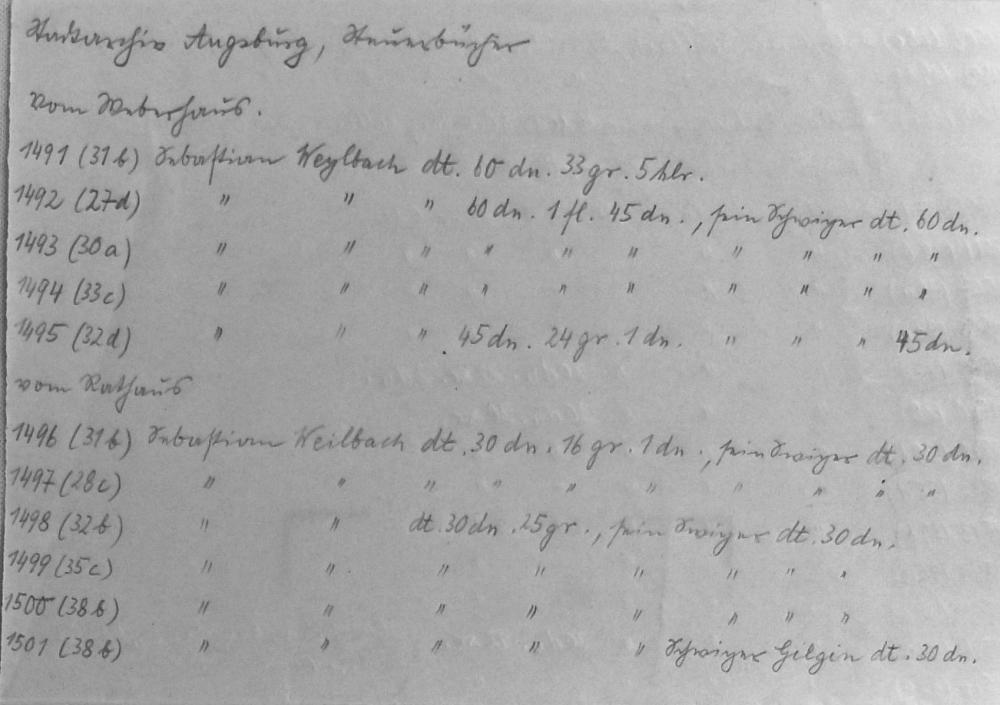 Stadtarchiv Augsburg, Steuerbücher
Vom Weberhaus.
1491 (31b) Sebastian Weylbach dt. 60 dn. 33 gr. 5 hlr.
1492 (27d) " " " 60 dn. 1 fl. 45 dn., sein Schwiger dt. 60 dn.
1493 (30a) " " " " " " " " " "
1494 (33c) " " " " " " " " " "
1495 (32d) " " " 45 dn. 24 gr. 1 dn. " " " 45 dn.
vom Rathaus
1496 (31b) Sebastian Weilbach dt. 30 dn. 16 gr. 1 dn., sein Swiger dt. 30 dn.
1497 (28c) " " " " " " " " " "
1498 (32b) " " dt. 30 dn. 25 gr., sein Swiger dt. 30 dn.
1499 (35c) " " " " " " " "
1500 (38b) " " " " " " " "
1501 (38b) " " " " " Schwiger Gilgin dt. 30 dn.